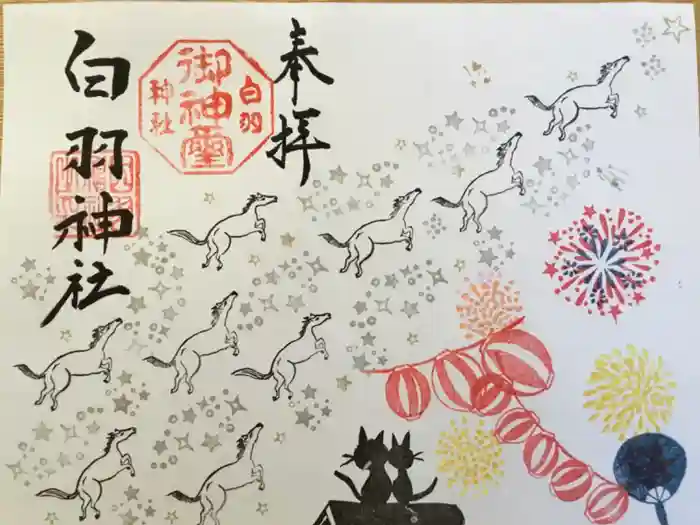 奉拝
御神璽
白羽
神社
白羽神社